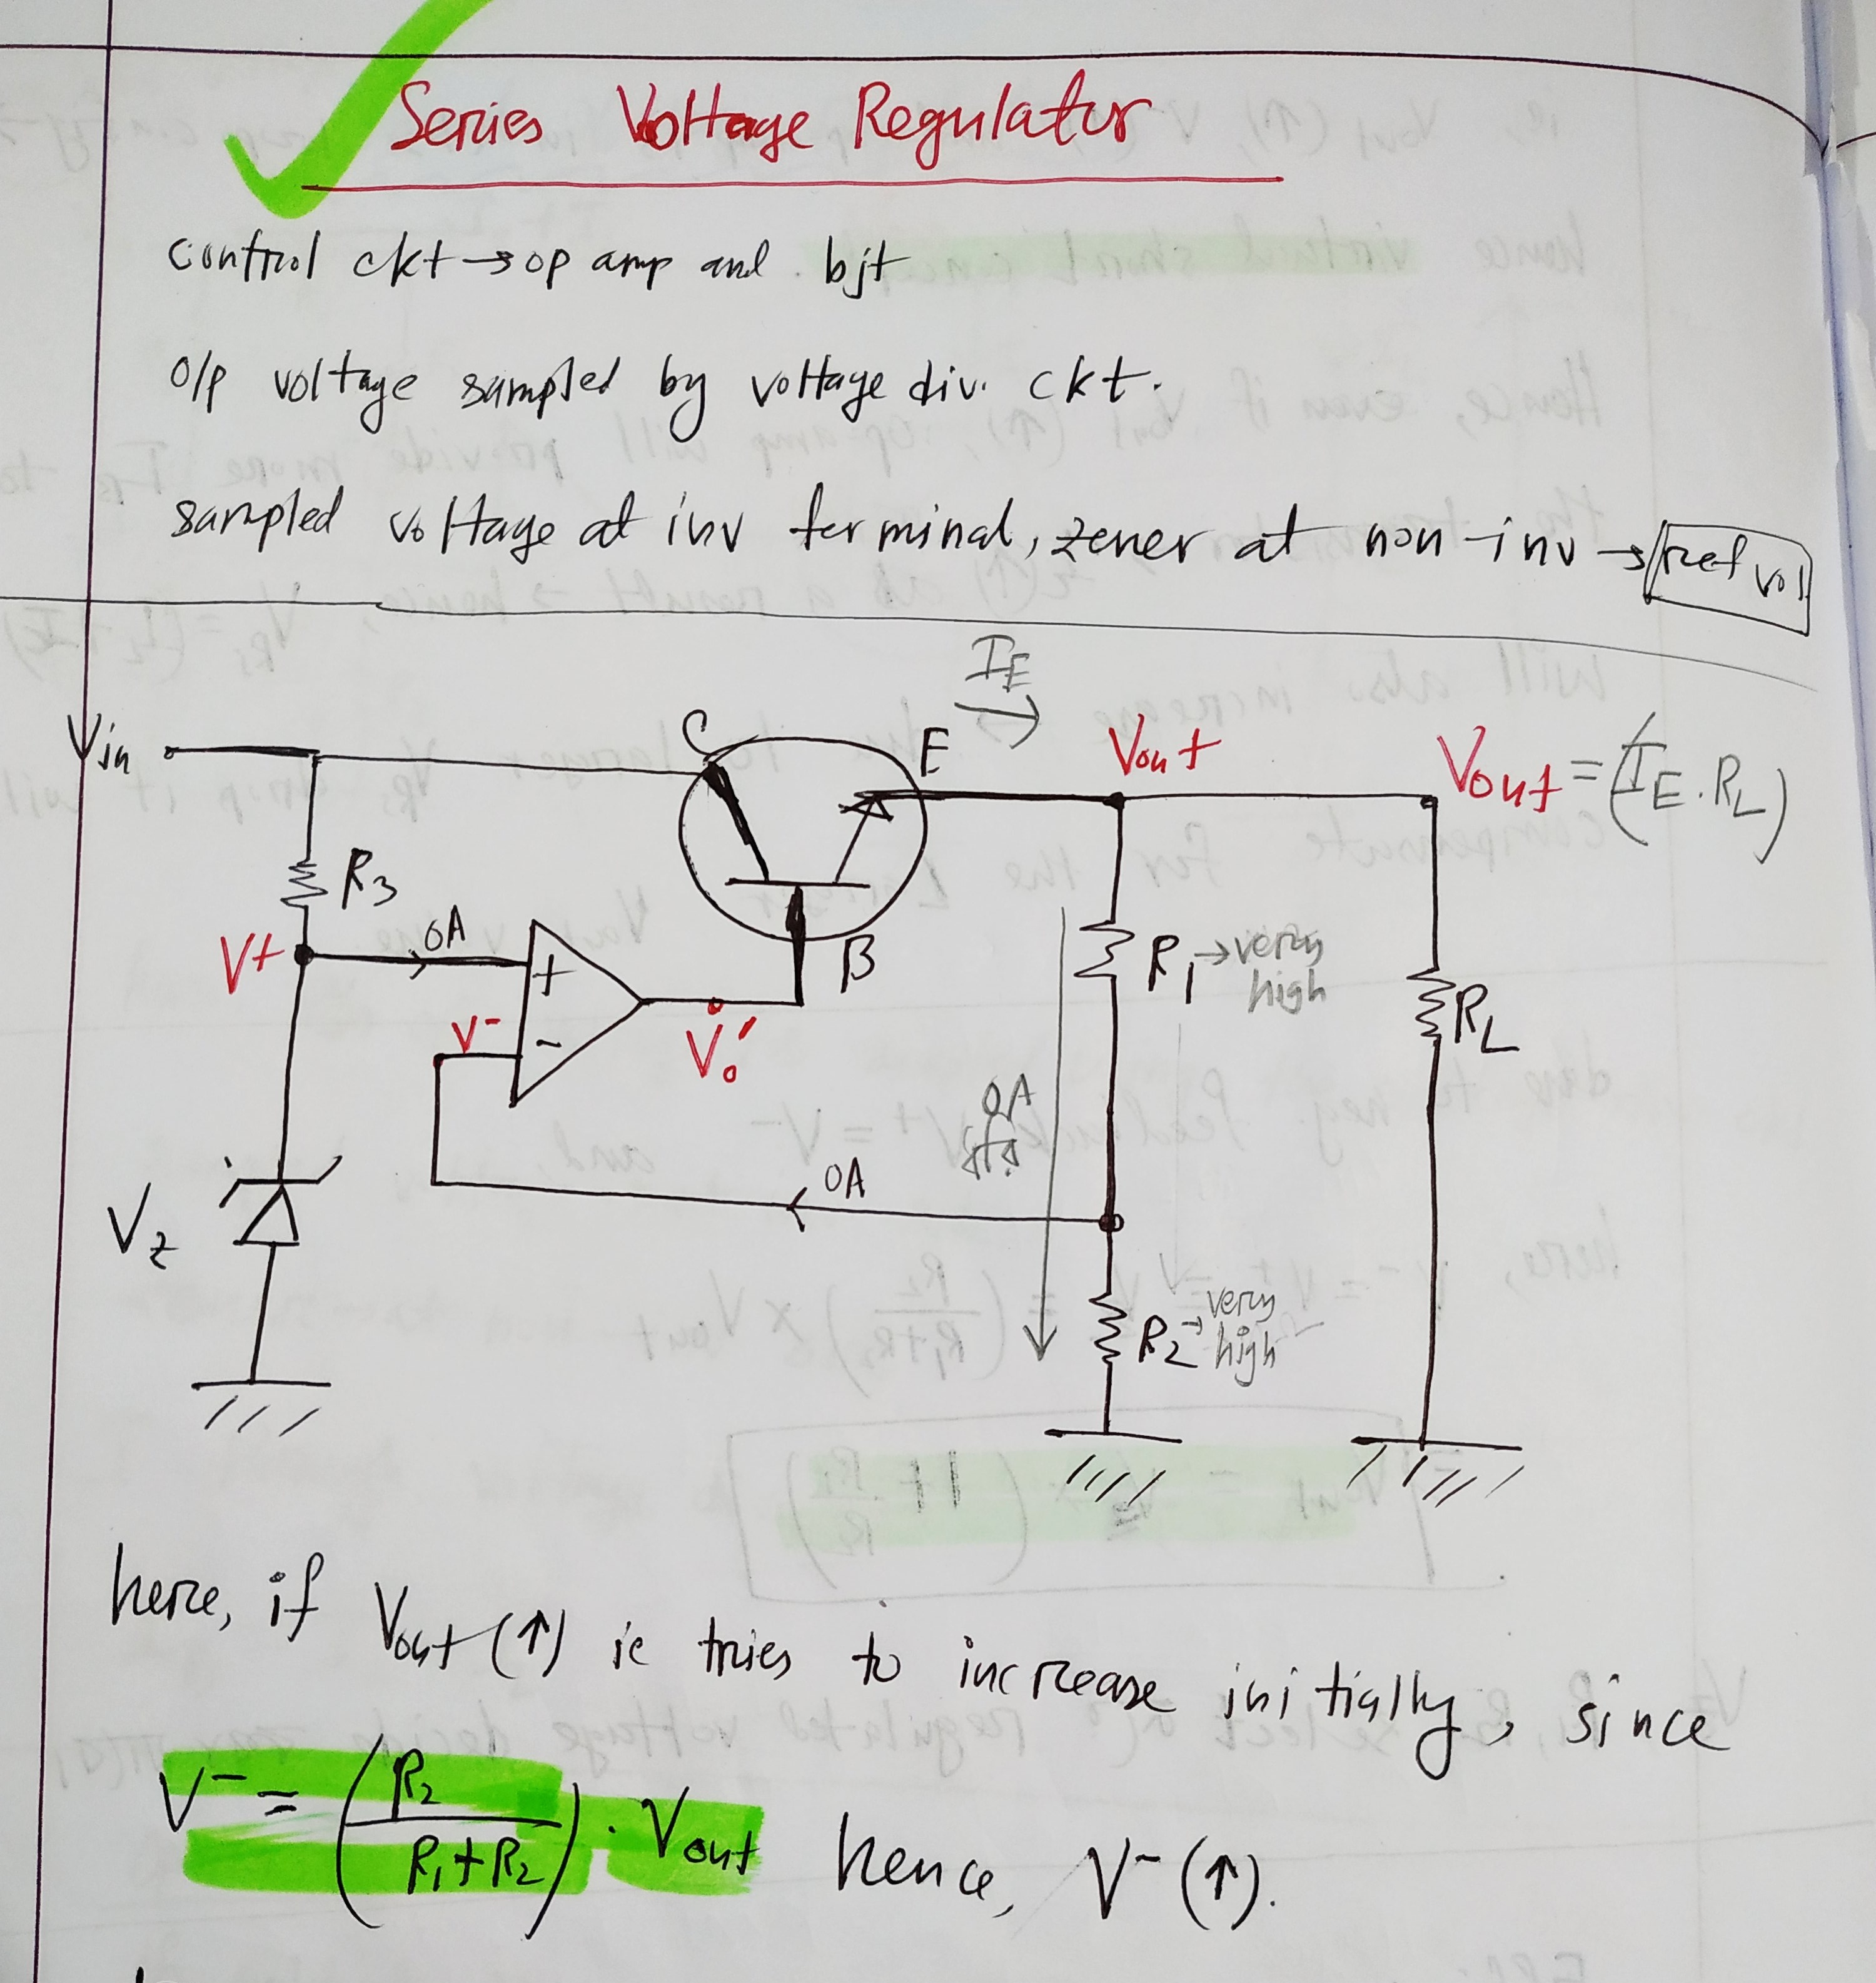 Series Voltage Regulator
control ckt → op amp and bjt
o/p voltage sampled by voltage div. ckt.
sampled voltage at inv terminal, zener at non-inv → ref vol
I_E
Vin
C
E
Vout
Vout = (I_E . R_L)
R3
V+
0A
+
B
R1 → very high
V-
-
Vo'
R_L
0A
0A
Vz
R2 → very high
here, if Vout (↑) ie tries to increase initially, since
V⁻ = (R2 / R1+R2) . Vout hence, V⁻ (↑).